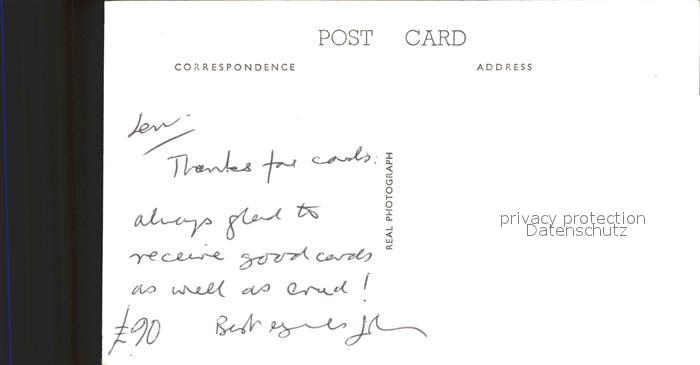 POST CARD
CORRESPONDENCE
ADDRESS
Len.
Thanks for cards.
always glad to
receive good cards
as well as crud!
£90 Best John
REAL PHOTOGRAPH
privacy protection
Datenschutz